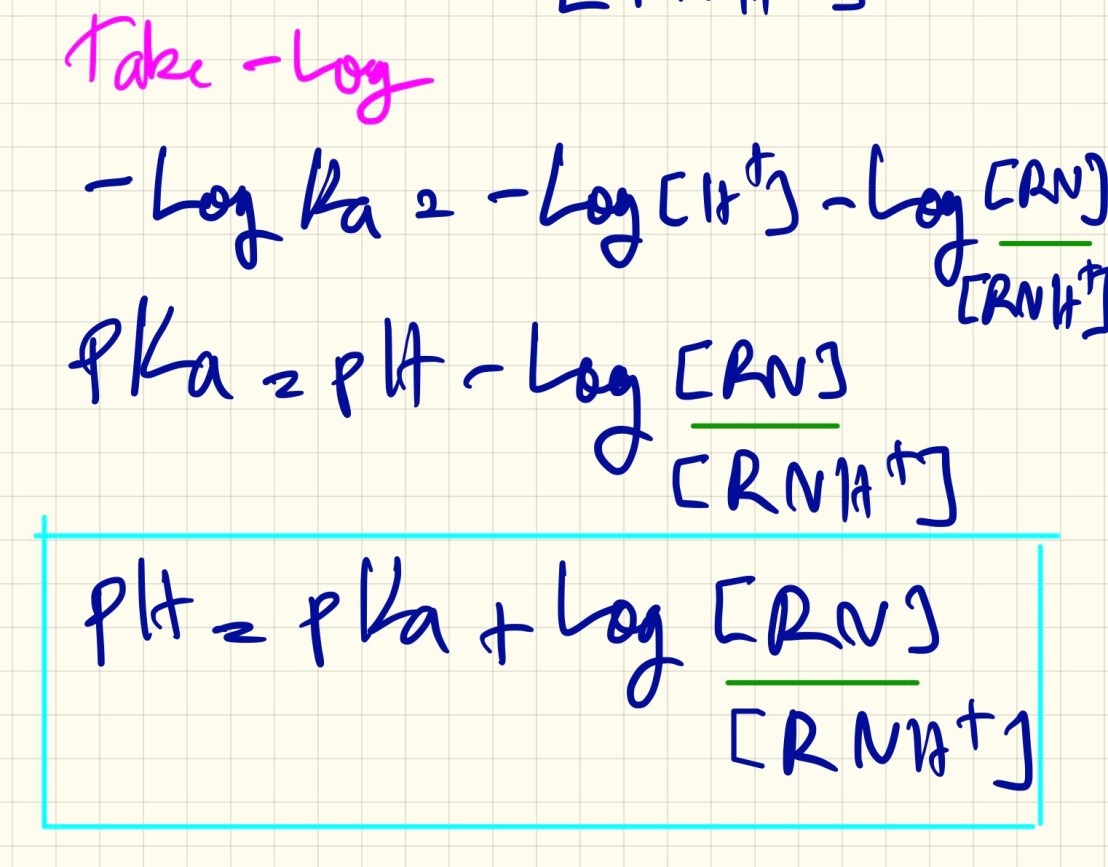 Take -Log
-Log Ka = -Log [H+] - Log [RN]
[RNH+]
PKa = pH - Log [RN]
[RNH+]
PH = pKa + Log [RN]
[RNH+]